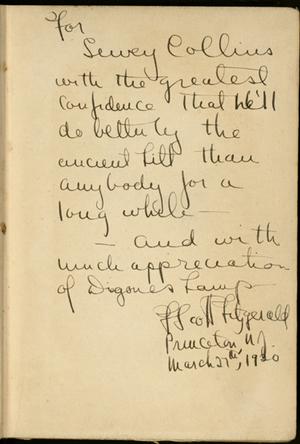 For
Sewey Collins
with the greatest
confidence that he'll
do better by the
ancient hill than
anybody for a
long while —
— and with
much appreciation
of Digones Lamp
F Scott Fitzgerald
Princeton N.J.
March 27th, 1920